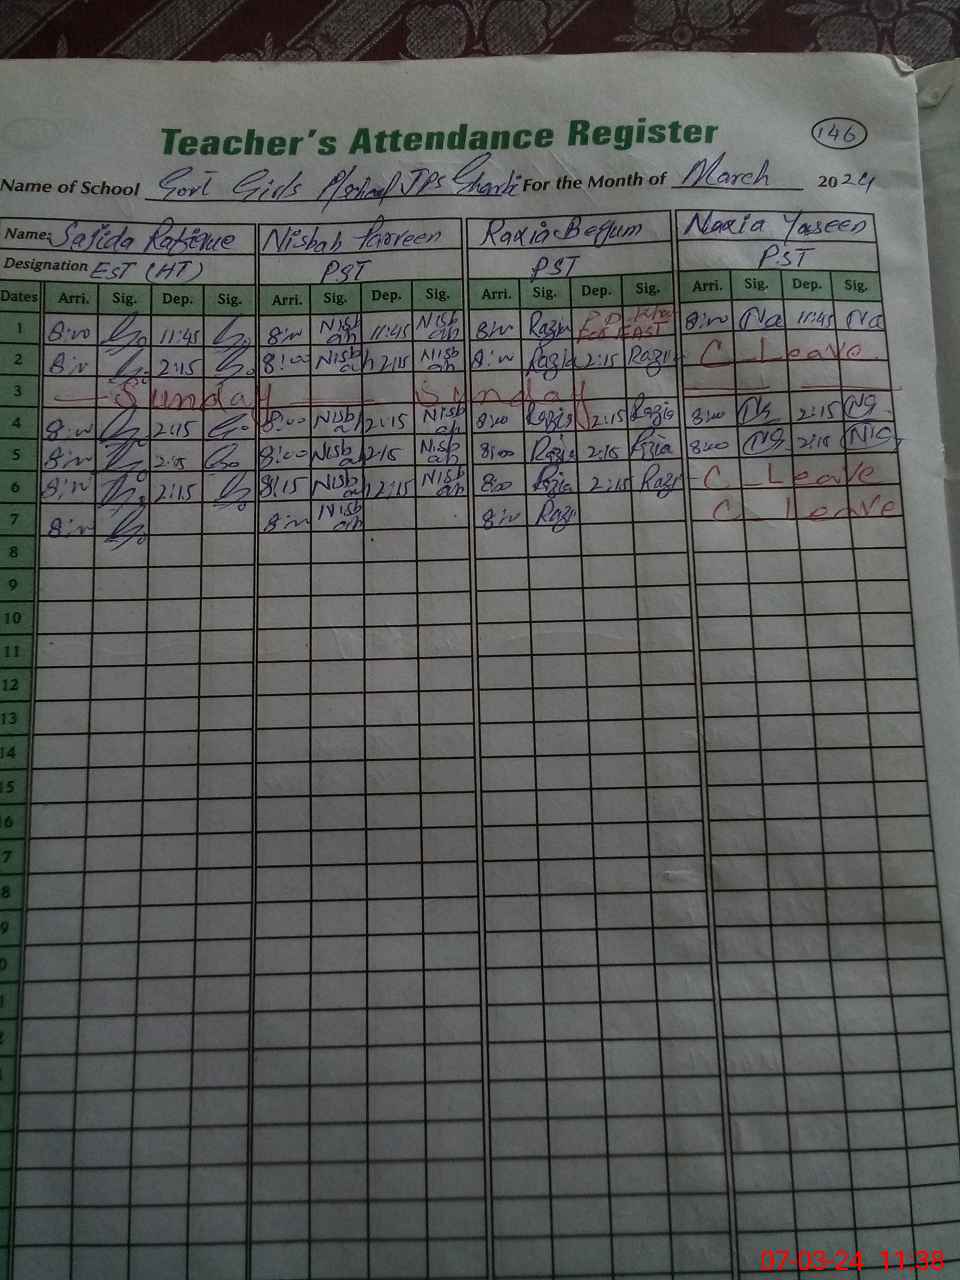 Teacher's Attendance Register 146
Name of School Govt Girls JPS For the Month of March 2024
Name: Sajida Rafique Nisbah Parveen Razia Begum Nazia Yaseen
Designation EST (HT) PST PST PST
Dates Arri. Sig. Dep. Sig. Arri. Sig. Dep. Sig. Arri. Sig. Dep. Sig. Arri. Sig. Dep. Sig.
1 8:00 11:45 8:00 Nisbah 11:45 Nisbah 8:00 Razia 8:00 Na 11:45 Na
2 8:00 2:15 8:00 Nisbah 2:15 Nisbah 8:00 Razia 2:15 Razia C Leave
3 Sunday Sunday
4 8:00 2:15 8:00 Nisbah 2:15 Nisbah 8:00 Razia 2:15 Razia 8:00 2:15
5 8:00 2:15 8:00 Nisbah 2:15 Nisbah 8:00 Razia 2:15 Razia 8:00 2:15
6 8:00 2:15 8:15 Nisbah 2:15 Nisbah 8:00 Razia 2:15 Razi C Leave
7 8:00 8:00 Nisbah 8:00 Razi C Leave
8
9
10
11
12
13
14
15
16
7
8
9
0
1
2
07-03-24 11:38